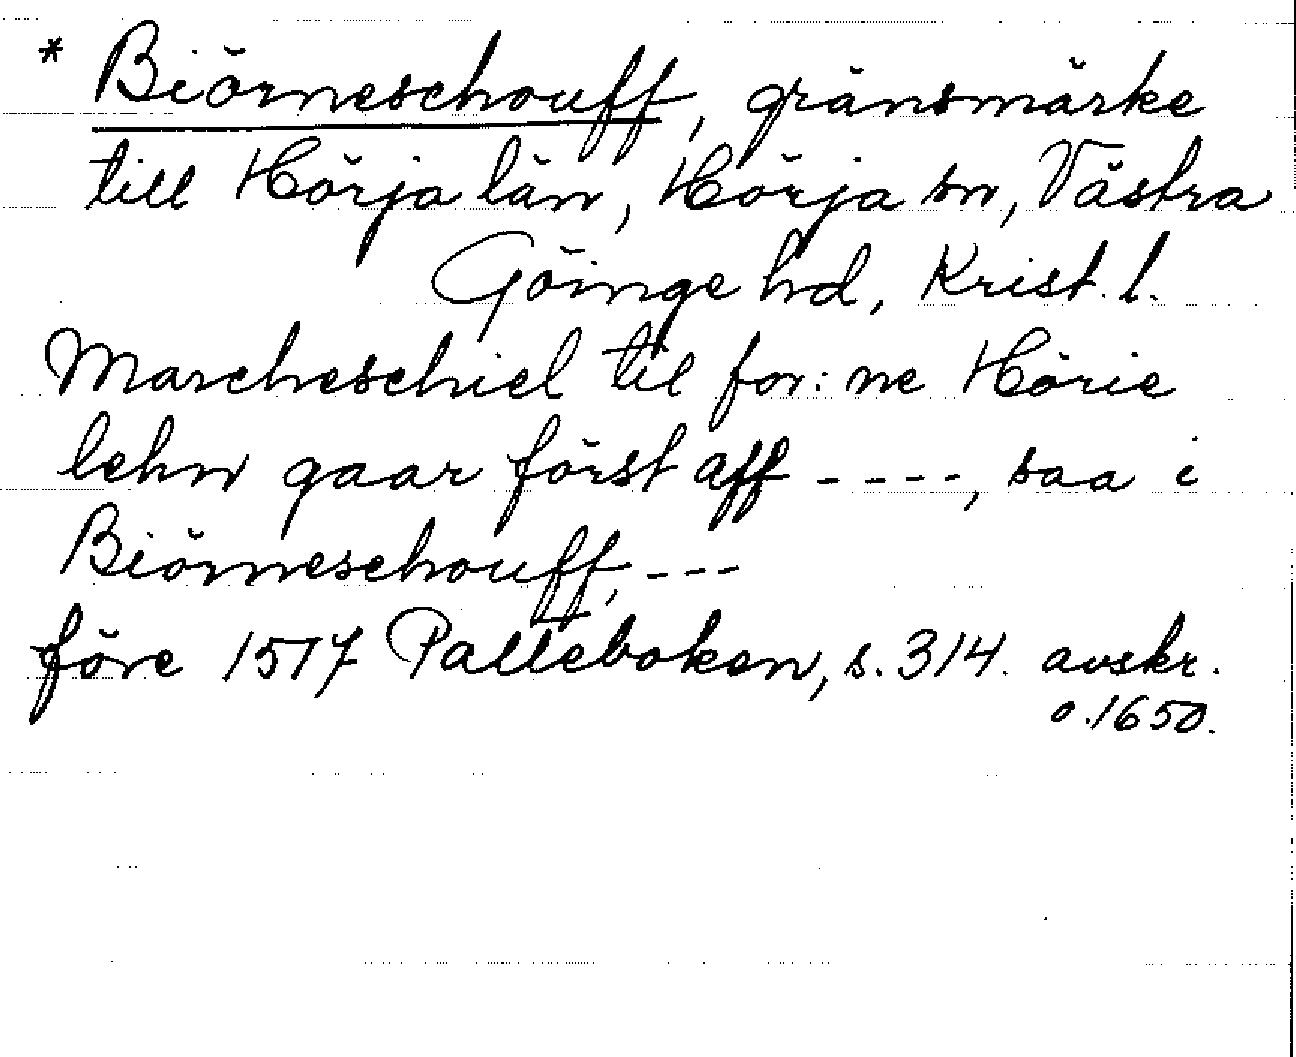 * Biörneschouff, gränsmärke
till Hörja län, Hörja sn, Västra
Göinge hd, Krist. l.
Marcheschiel til for: ne Hörie
lehn gaar först aff ----, saa i
Biörneschouff, ---
före 1517 Palteboken, s. 314. avskr.
o. 1650.